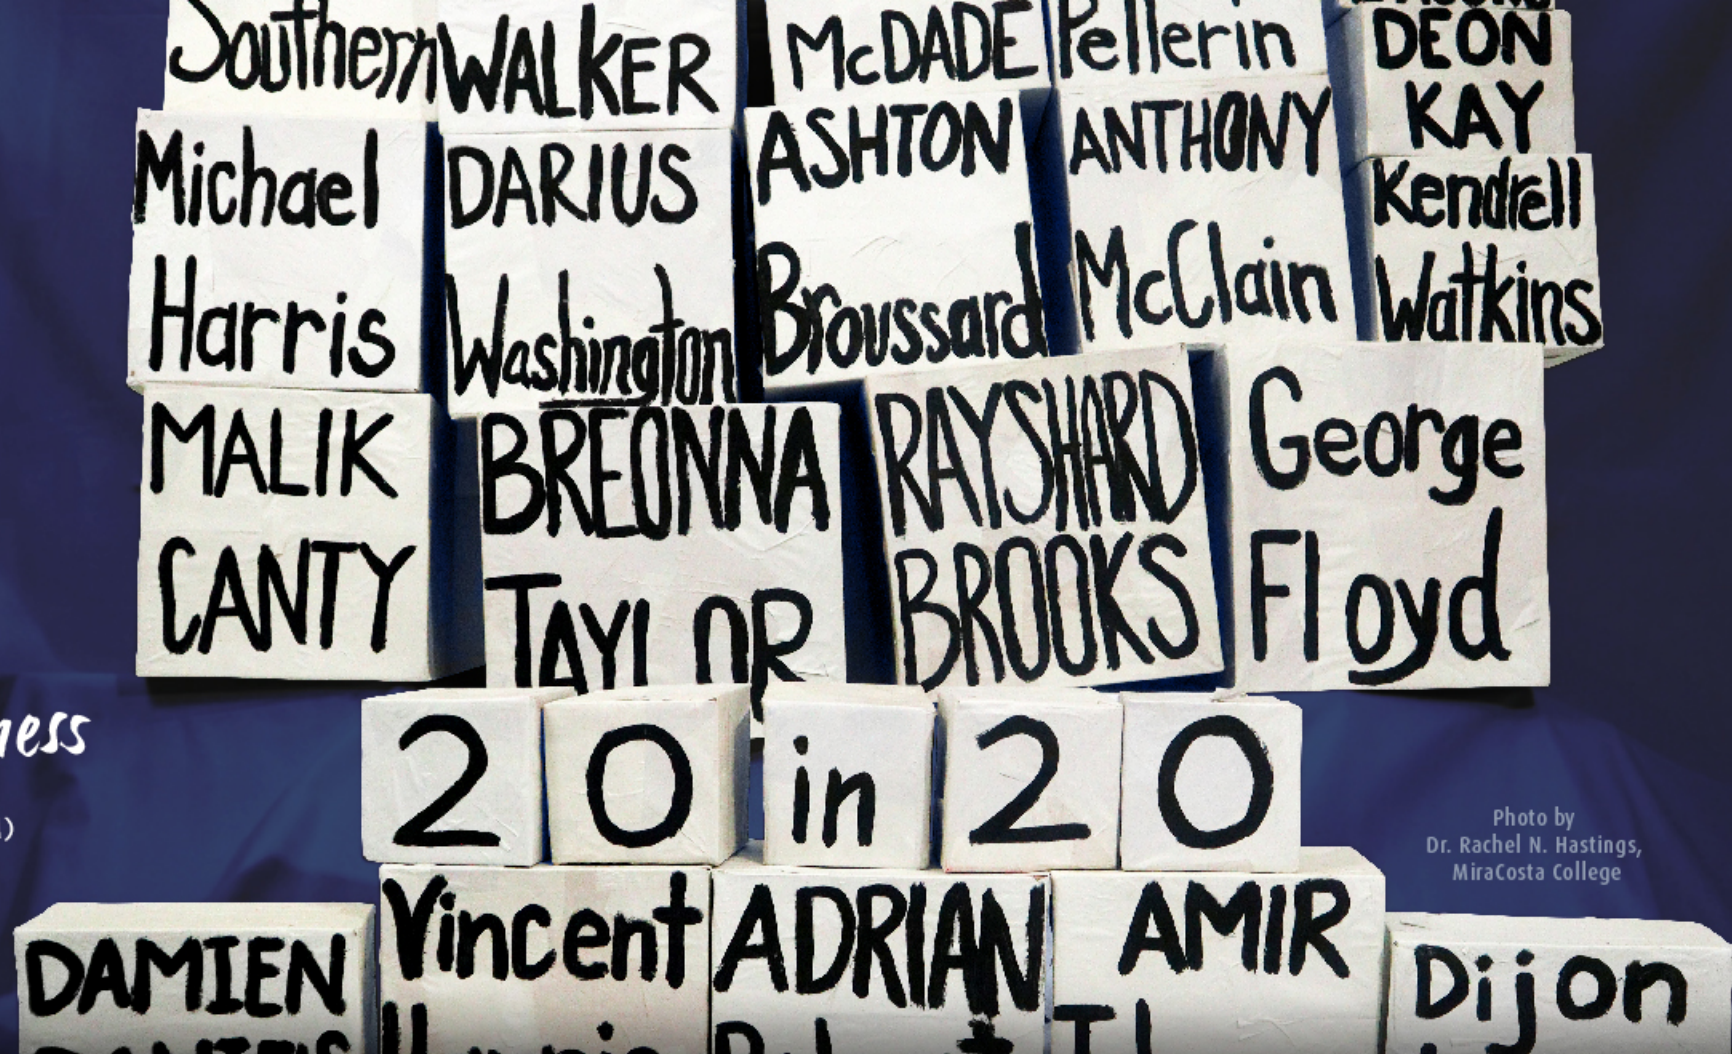 Southern
WALKER
McDADE
Pellerin
DEON
KAY
Michael
Harris
DARIUS
Washington
ASHTON
Broussard
ANTHONY
McClain
Kendrell
Watkins
MALIK
CANTY
BREONNA
TAYLOR
RAYSHARD
BROOKS
George
Floyd
20 in 20
Photo by
Dr. Rachel N. Hastings,
MiraCosta College
DAMIEN
DANIELS
Vincent
Harris
ADRIAN
AMIR
Dijon